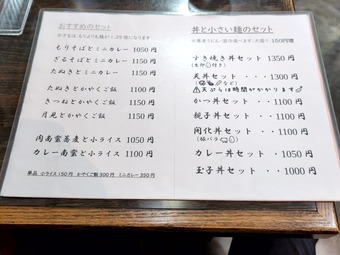 おすすめのセット
かさるは、もりよりも麺が1.25倍になります
もりそばとミニカレー 1050円
ざるそばとミニカレー 1150円
たぬきとミニカレー 1150円
たぬきとかやくご飯 1100円
きつねとかやくご飯 1100円
月見とかやくご飯 1150円
肉南蛮蕎麦と小ライス 1050円
カレー南蛮と小ライス 1100円
単品 小ライス150円 かやくご飯300円 ミニカレー350円
丼と小さい麺のセット
すき焼き丼セット・・1350円
天丼セット・・・1300円
⚠天ぷらは時間がかかります
かつ丼セット・・1100円
親子丼セット・・1100円
開化丼セット・・1100円
カレー丼セット・・1050円
玉子丼セット・・1000円